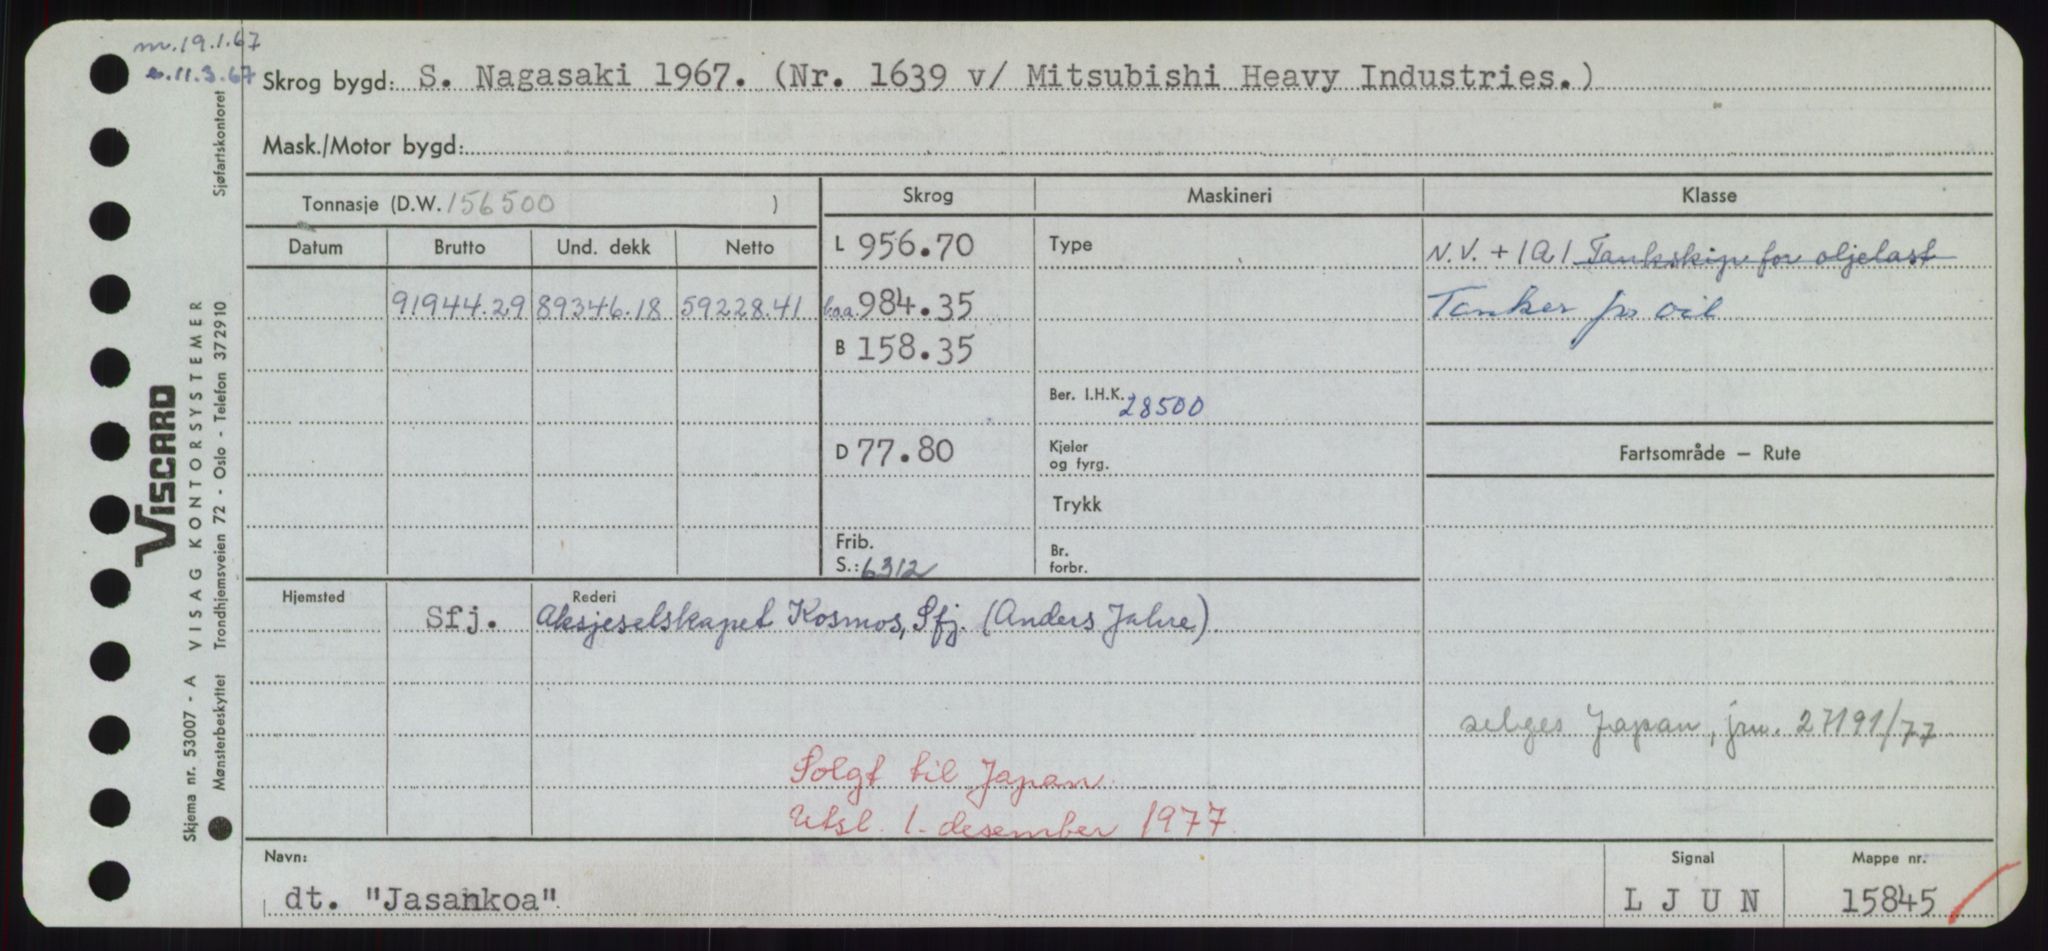 m.19.1.67
b.11.3.67
Skrog bygd: S. Nagasaki 1967. (Nr. 1639 v/ Mitsubishi Heavy Industries.)
Mask./Motor bygd:
Tonnasje (D.W. 156500 )
Skrog
Maskineri
Klasse
Datum
Brutto
Und. dekk
Netto
L 956.70
Type
N.V. + 1A1 Tankskip for oljelast
91944.29 89346.18 59228.41
l.o.a. 984.35
Tanker for oil
B 158.35
Ber. I.H.K. 28500
D 77.80
Kjeler
og fyrg.
Fartsområde – Rute
Trykk
Frib.
S.: 6312
Br.
forbr.
Hjemsted
Rederi
Sfj. Aksjeselskapet Kosmos, Sfj. (Anders Jahre)
selges Japan, jnr. 27191/77
Solgt til Japan
Utsl. 1. desember 1977.
Navn:
dt. "Jasankoa"
Signal
LJUN
Mappe nr.
15845
VISCARD
Skjema nr. 53007 - A VISAG KONTORSYSTEMER
Mønsterbeskyttet Trondhjemsveien 72 - Oslo - Telefon 372910
Sjøfartskontoret